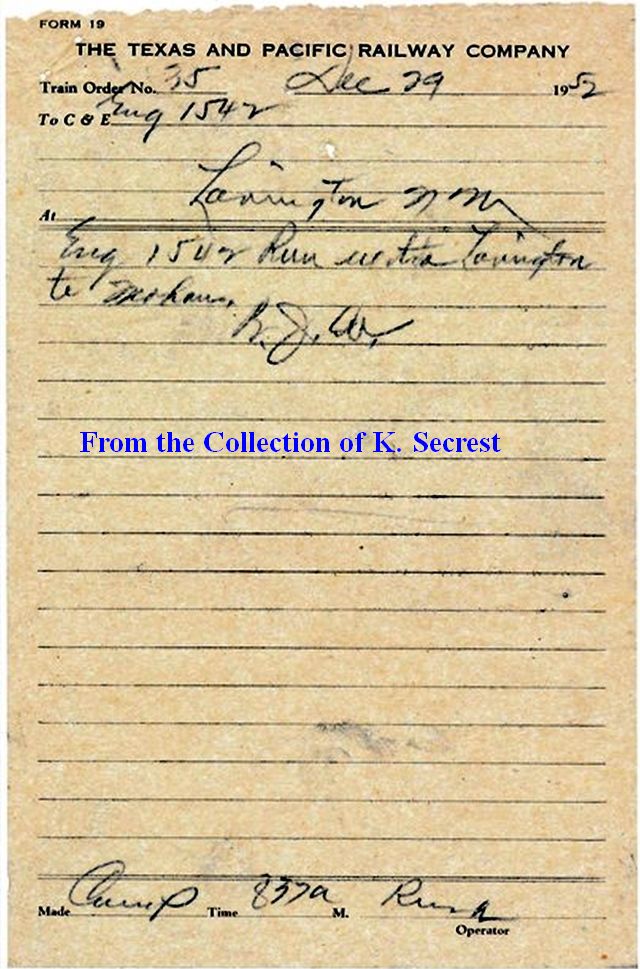 FORM 19
THE TEXAS AND PACIFIC RAILWAY COMPANY
Train Order No. 35 Dec 29 1952
To C & E Eng 1542
At Lovington N M
Eng 1542 Run extra Lovington
to Mohans.
R. J. W.
From the Collection of K. Secrest
Made Comp Time 837a M.
Operator